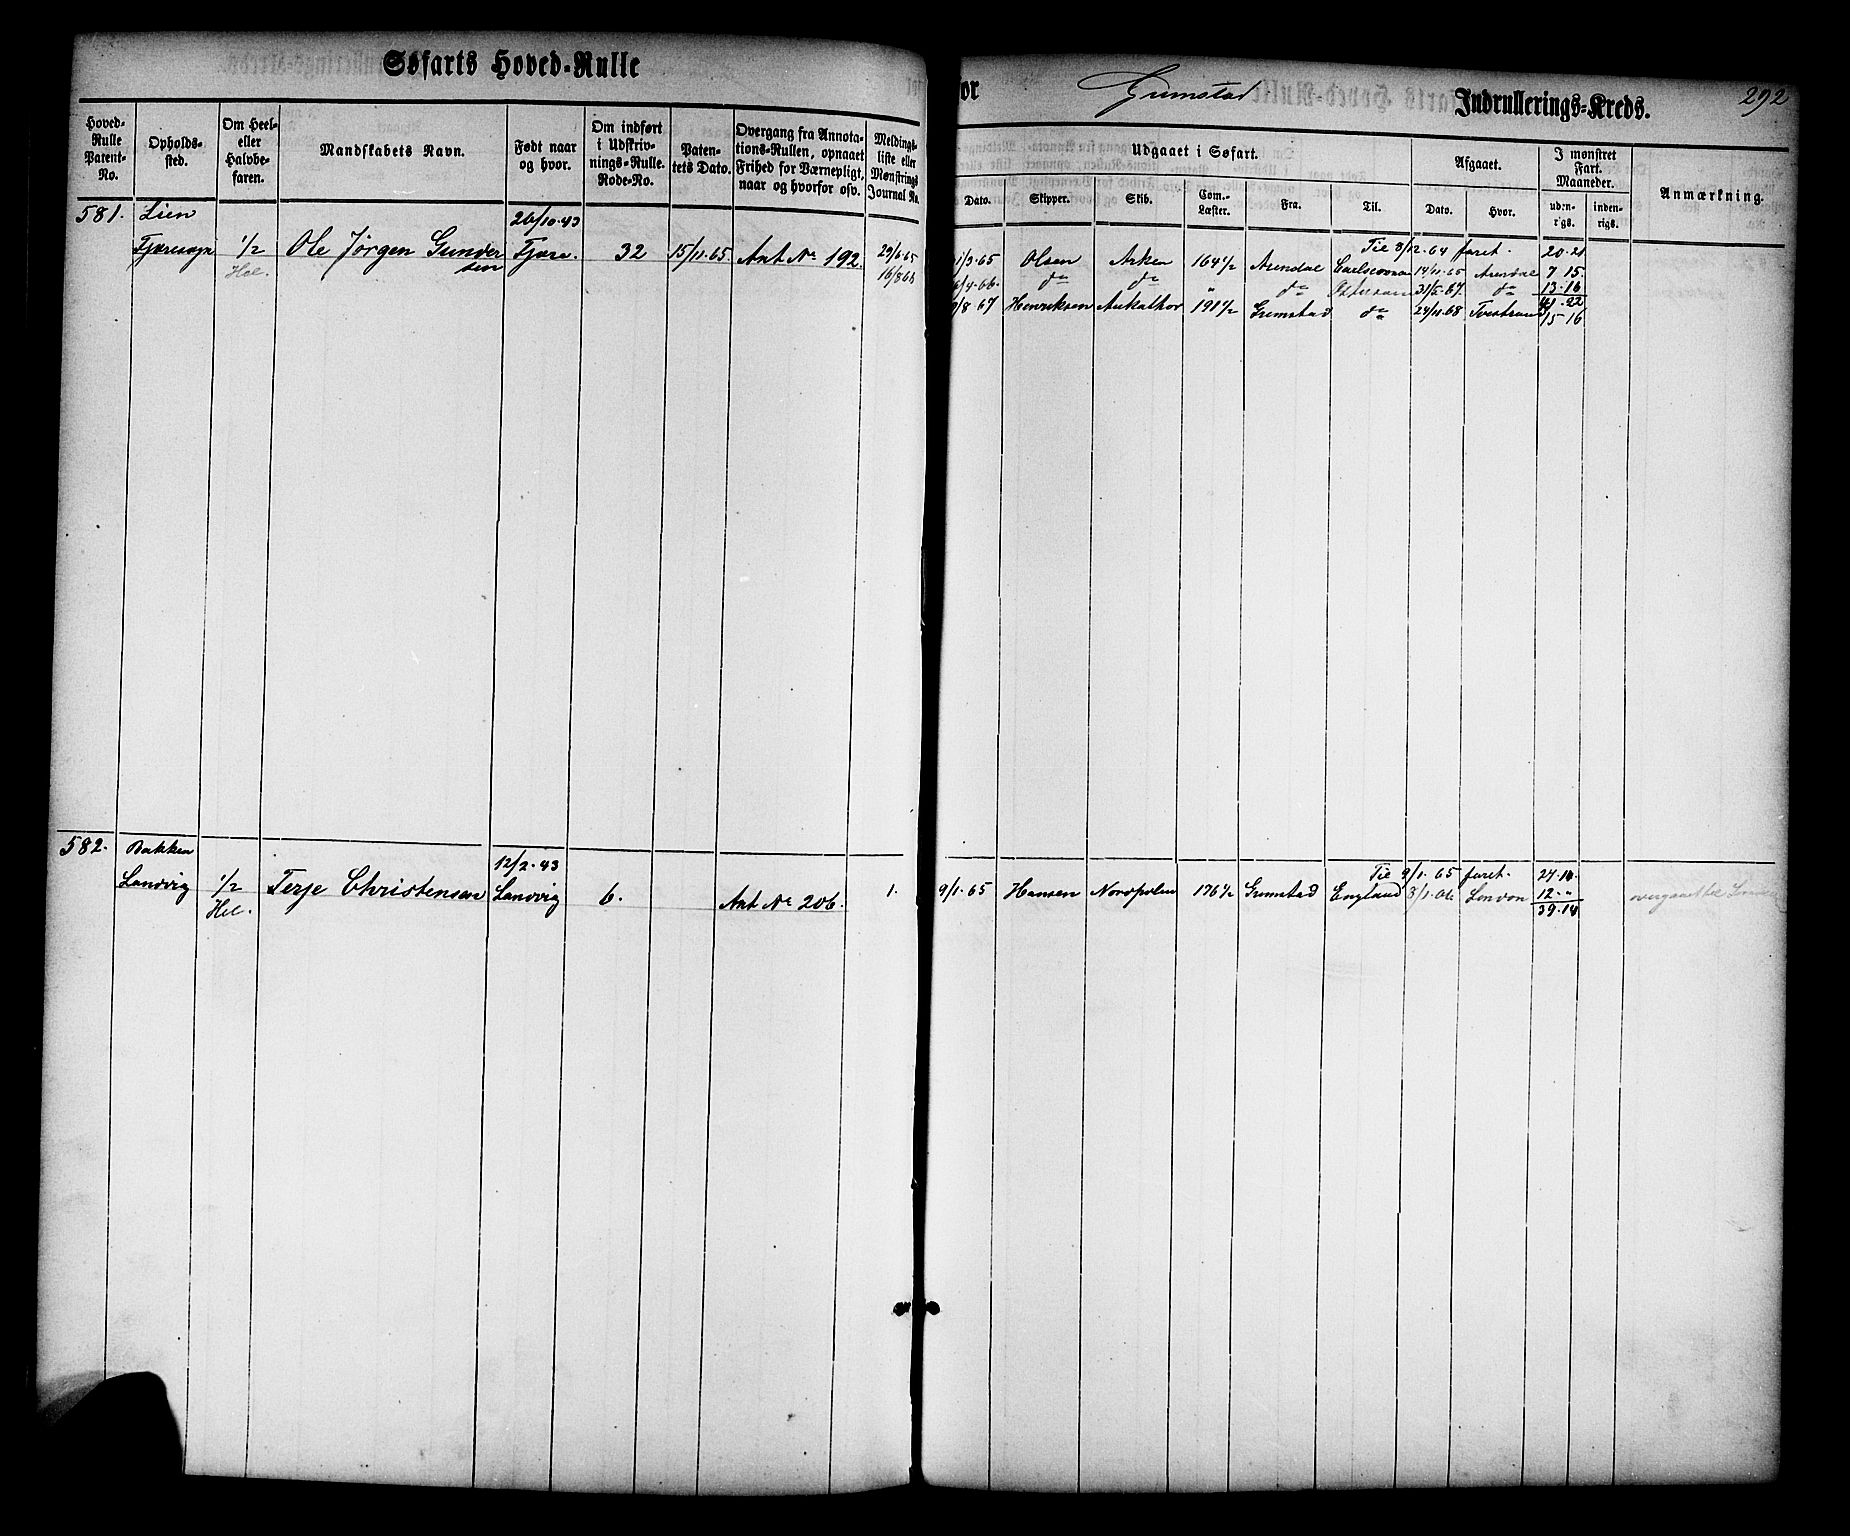 Søfarts Hoved-Rulle
for Grimstad Indrullerings-Kreds. 292
Hoved-Rulle Patent-No.
Opholds-sted.
Om Heel- eller Halvbe-faren.
Mandskabets Navn.
Født naar og hvor.
Om indført i Udskriv-nings-Rulle. Rode-No.
Paten-tets Dato.
Overgang fra Annota-tions-Rullen, opnaaet Frihed for Værnepligt, naar og hvorfor osv.
Meldings-liste eller Mønstrings Journal No.
Udgaaet i Søfart.
Dato. Skipper. Skib. Com.-Læster. Fra. Til.
Afgaaet.
Dato. Hvor.
I mønstret Fart. Maaneder.
uden-rigs. inden-rigs.
Anmærkning.
581. Lien 20/10.43
Fjæresogn 1/2 Ole Jørgen Gunder Fjære. 32 15/11.65. Ant No 192. 29/6.65
Hel. sen 16/8 68
Til 8/12.64 faret. 20.21
1/3.65 Olsen Arken 164 1/2 Arendal 14/11.65 Arendal 7 15
6/4.66. do do " do 31/5.67 do 13.16
/8.67 Henriksen 191 1/2 Grimstad do 24/11.68 41.22
15-16
582. Bakken 12/2.43
Landvig 1/2 Terje Christensen Landvig 6. Ant No 206. 1.
Hel.
Til 9/1.65 faret. 27.14
9/1.65 Hansen Nordpolen 176 1/2 Grimstad England 8/1.66 London 12."
39.14
overgaaet til